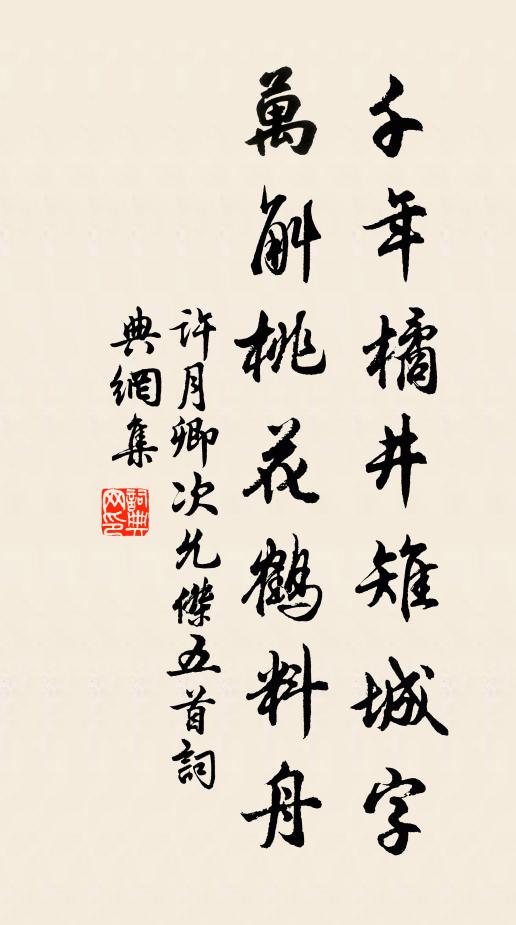 千年橘井雉城字
萬斛桃花鶴料舟
許月卿次允傑五首詞
典網集
詞典網印